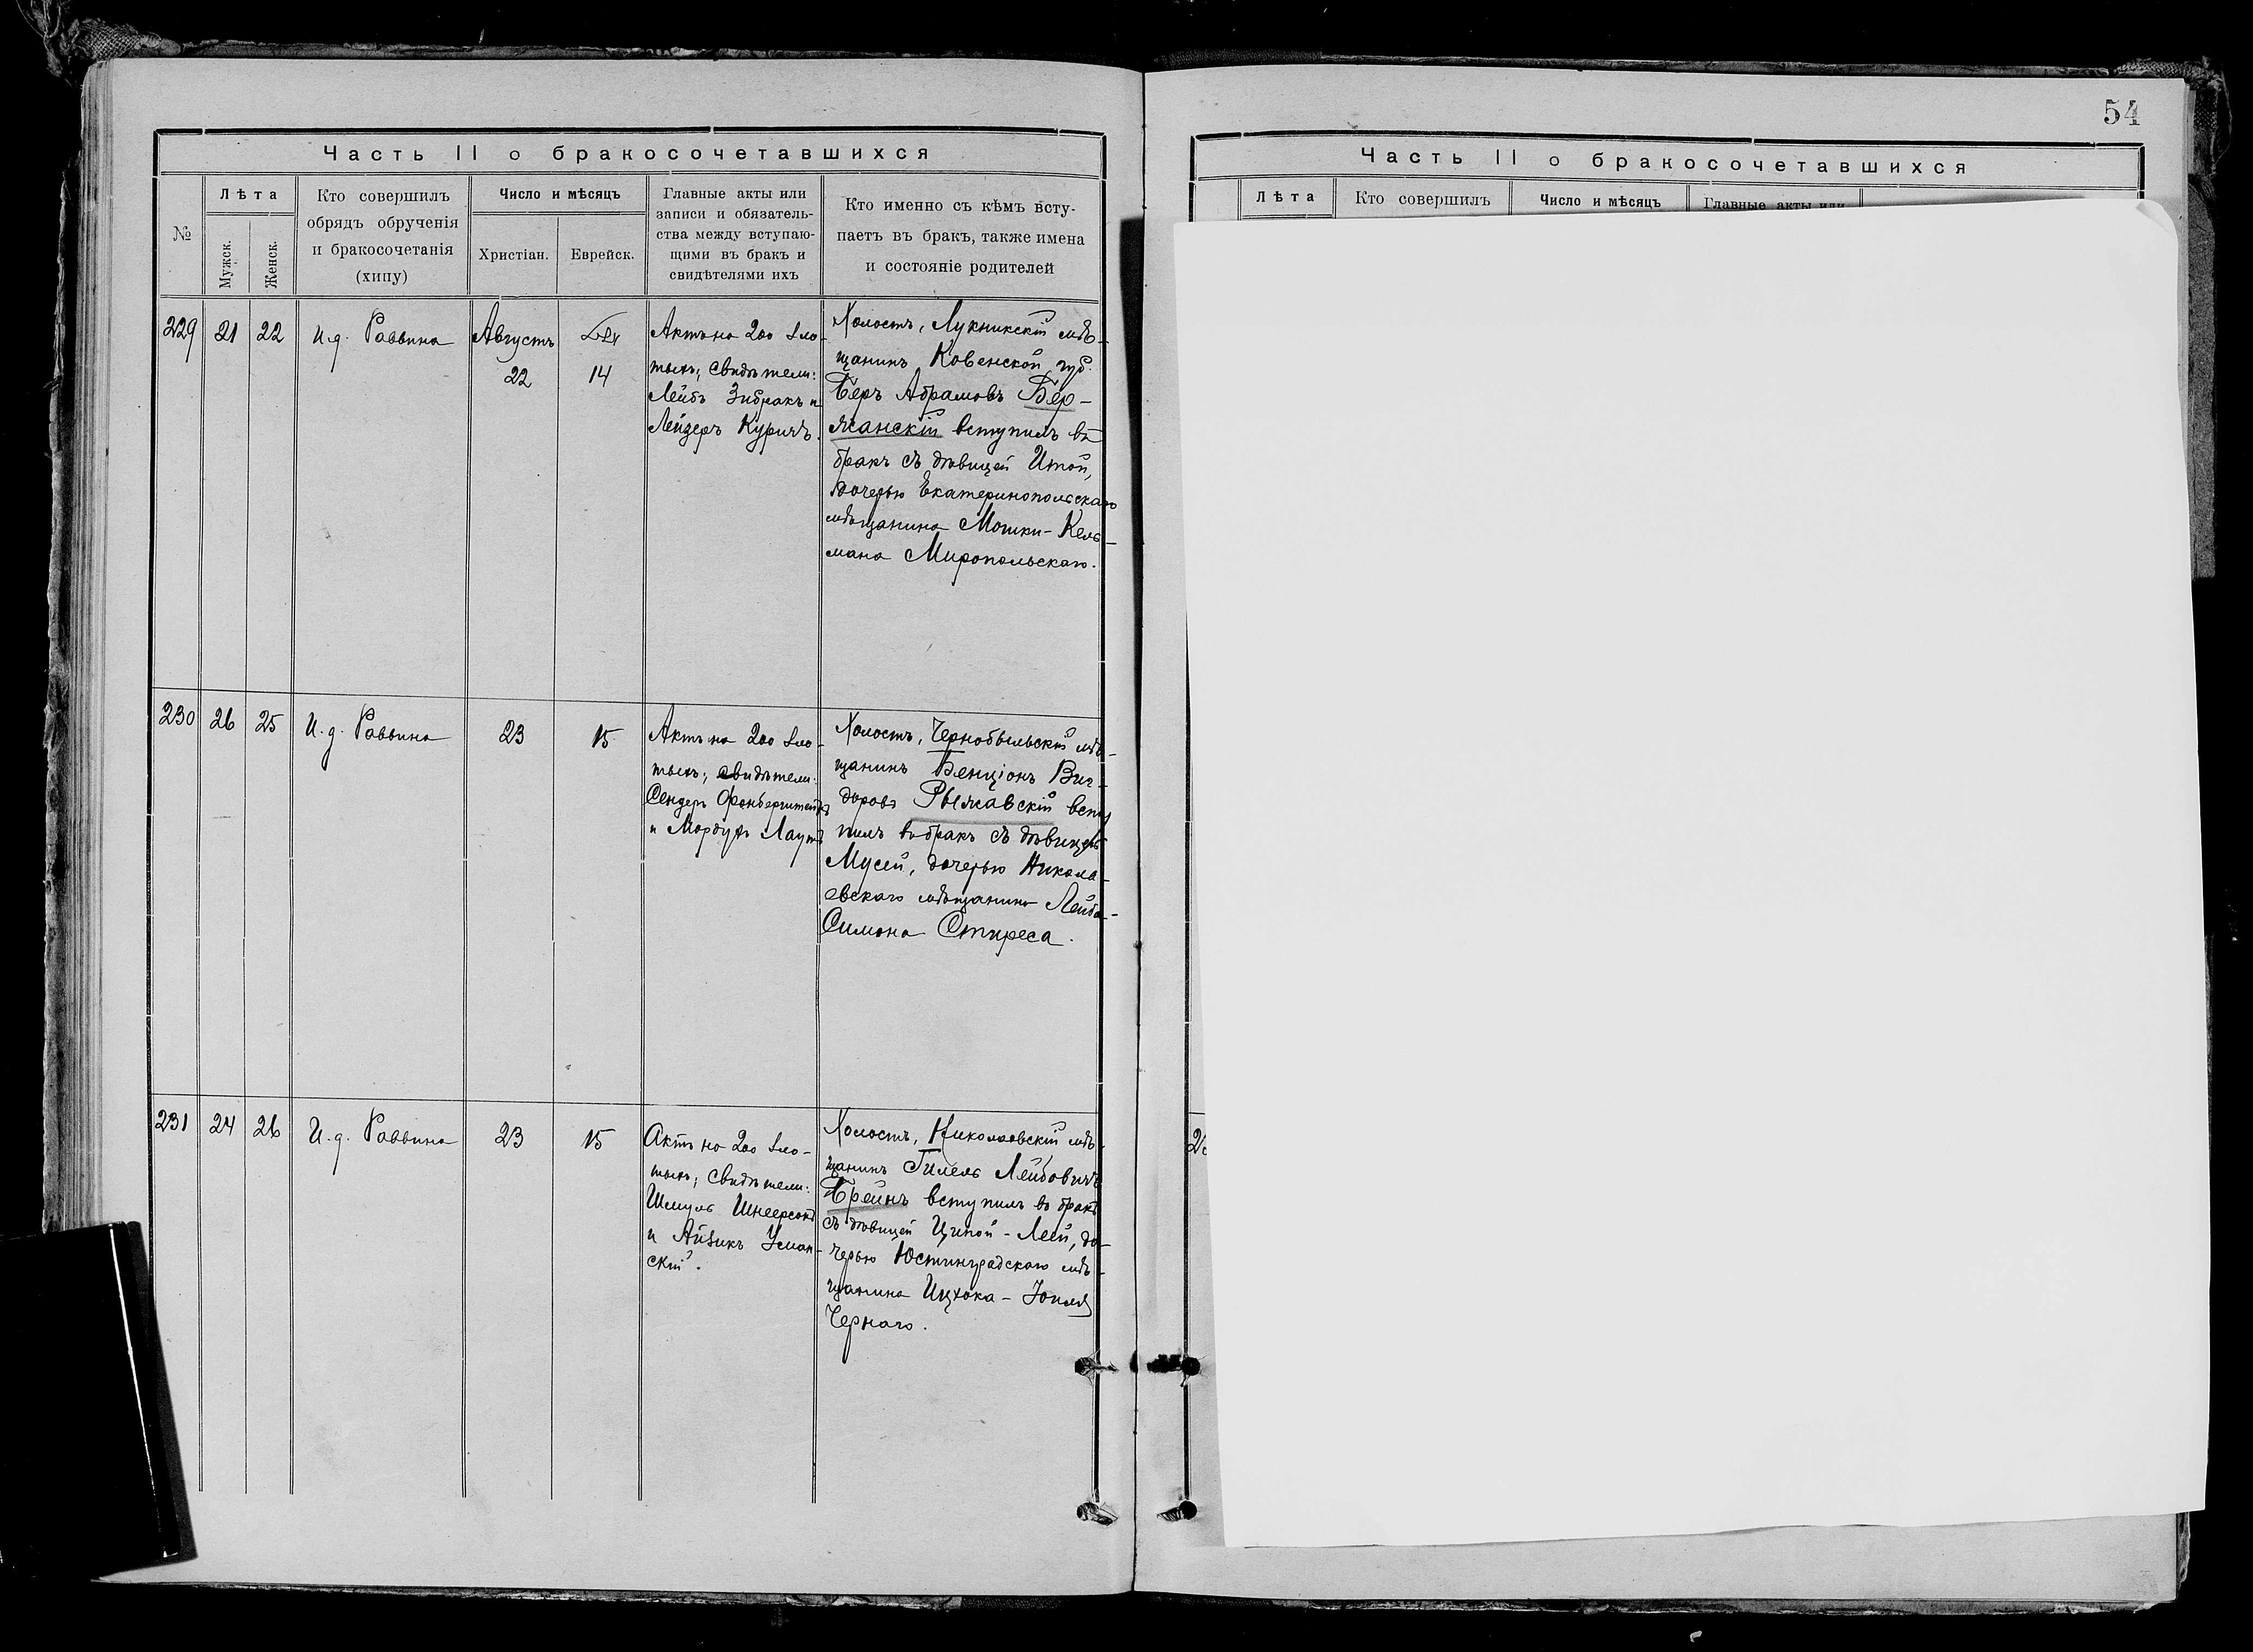 Часть II о бракосочетавшихся
№
Лѣта
Мужск.
Женск.
Кто совершилъ
обрядъ обрученія
и бракосочетанія
(хипу)
Число и мѣсяцъ
Христіан.
Еврейск.
Главные акты или
записи и обязатель-
ства между вступаю-
щими въ бракъ и
свидѣтелями ихъ
Кто именно съ кѣмъ всту-
паетъ въ бракъ, также имена
и состояніе родителей
229
21
22
И.д. Раввина
Августъ
22
14
Актъ на 200 зло-
тыхъ; свидѣтели:
Лейбъ Зибракъ и
Лейзеръ Куричъ.
Холостъ, Лукникскій мѣ-
щанинъ Ковенской губ.
Беръ Абрамовъ Бер-
жанскій вступилъ въ
бракъ съ дѣвицей Итой,
дочерью Екатеринопольскаго
мѣщанина Мошки-Кель-
мана Миропольскаго.
230
26
25
И.д. Раввина
23
15
Актъ на 200 зло-
тыхъ; свидѣтели:
Сендеръ
и Мордухъ
Холостъ, Чернобыльскій мѣ-
щанинъ Бенціонъ Виг-
доровъ Рыжавскій всту
пилъ въ бракъ съ дѣвицей
Мусей, дочерью Никола-
евскаго мѣщанина Лейба-
Симона Стиреса.
231
24
26
И.д. Раввина
23
15
Актъ на 200 зло-
тыхъ; свидѣтели:
Шмуль Шнеерсонъ
и Айзикъ Уман-
скій.
Холостъ, Николаевскій мѣ-
щанинъ Гилель Лейбовичъ
Брейнъ вступилъ въ бракъ
съ дѣвицей Ципой-Леей, до-
черью Юстинградскаго мѣ-
щанина Ицхока-Іоиля
Чернаго.
54
Часть II о бракосочетавшихся
Лѣта
Кто совершилъ
Число и мѣсяцъ
Главные акты или